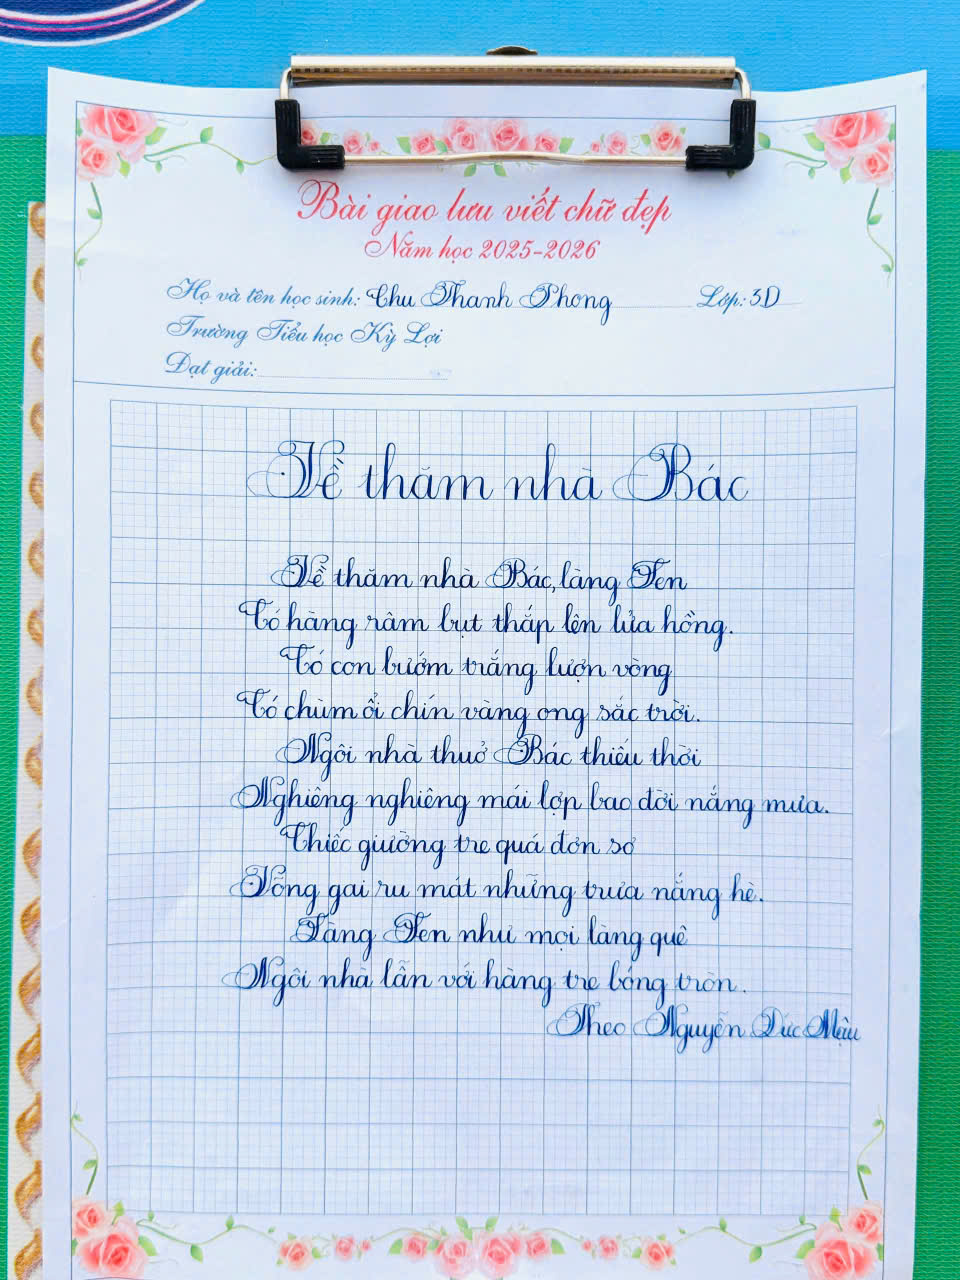 Bài giao lưu viết chữ đẹp
Năm học 2025-2026
Họ và tên học sinh: Chu Thanh Phong Lớp: 3D
Trường Tiểu học Kỳ Lợi
Đạt giải:
Về thăm nhà Bác
Về thăm nhà Bác, làng Sen
Có hàng râm bụt thắp lên lửa hồng.
Có con bướm trắng lượn vòng
Có chùm ổi chín vàng ong sắc trời.
Ngôi nhà thuở Bác thiếu thời
Nghiêng nghiêng mái lợp bao đời nắng mưa.
Chiếc giường tre quá đơn sơ
Võng gai ru mát những trưa nắng hè.
Làng Sen như mọi làng quê
Ngôi nhà lẫn với hàng tre bóng tròn.
Theo Nguyễn Đức Mậu